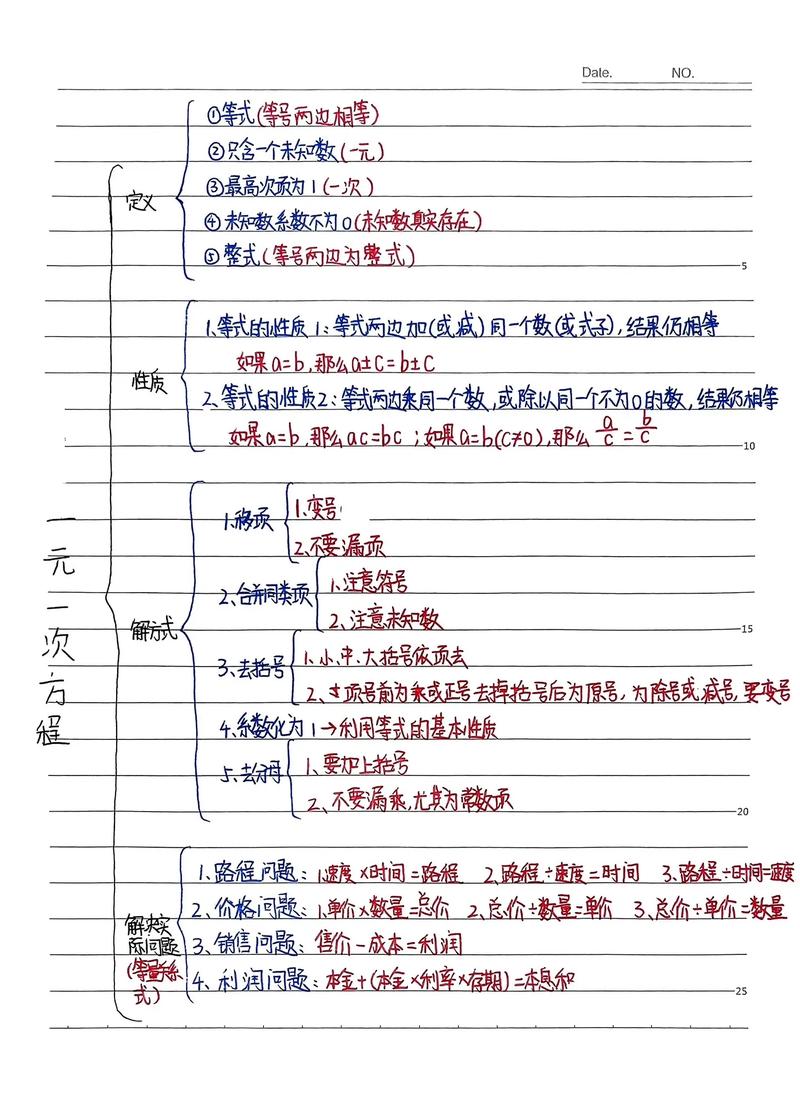 Date. NO.
一元一次方程
定义
①等式(等号两边相等)
②只含一个未知数(一元)
③最高次项为1(一次)
④未知数系数不为0(未知数真实存在)
⑤整式(等号两边为整式)
5
性质
1、等式的性质1:等式两边加(或减)同一个数(或式子),结果仍相等
如果a=b,那么a±c=b±c
2、等式的性质2:等式两边乘同一个数,或除以同一个不为0的数,结果仍相等
如果a=b,那么ac=bc;如果a=b(c≠0),那么a/c=b/c
10
解方式
1、移项
1.变号
2、不要漏项
2、合并同类项
1、注意符号
2、注意未知数
15
3、去括号
1、小、中、大括号依项去
2、项号前为乘或正号去掉括号后为原号,为除号或减号,要变号
4、系数化为1→利用等式的基本性质
5、去分母
1、要加上括号
2、不要漏乘,尤其为常数项
20
解决实际问题
(等量关系式)
1、路程问题:1.速度×时间=路程 2、路程÷速度=时间 3、路程÷时间=速度
2、价格问题:1.单价×数量=总价 2、总价÷数量=单价 3、总价÷单价=数量
3、销售问题:售价-成本=利润
4、利润问题:本金+(本金×利率×存期)=本息和
25